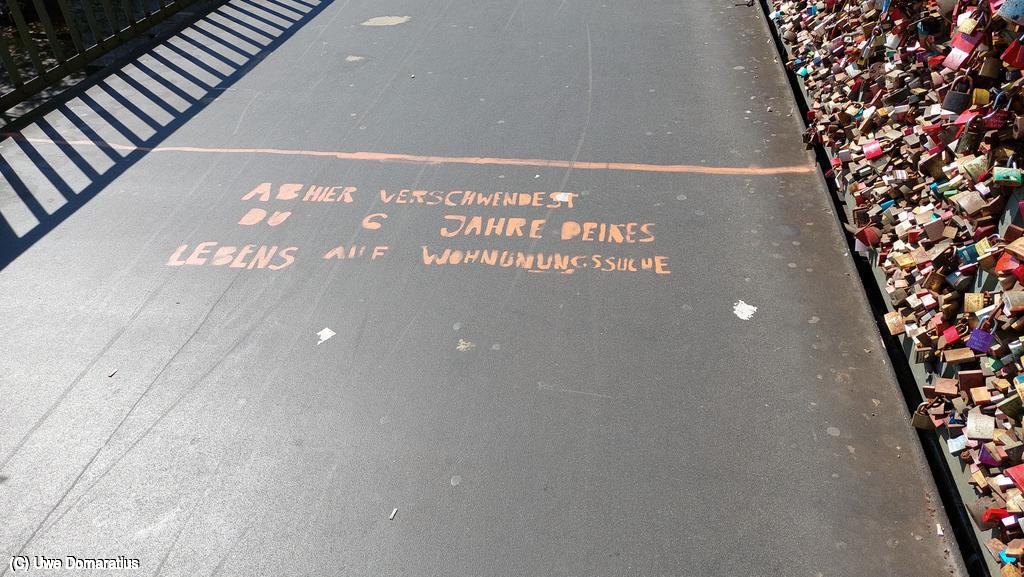 AB HIER VERSCHWENDEST
DU 6 JAHRE DEINES
LEBENS AUF WOHNUNUNGSSUCHE
(C) Uwe Domaratius